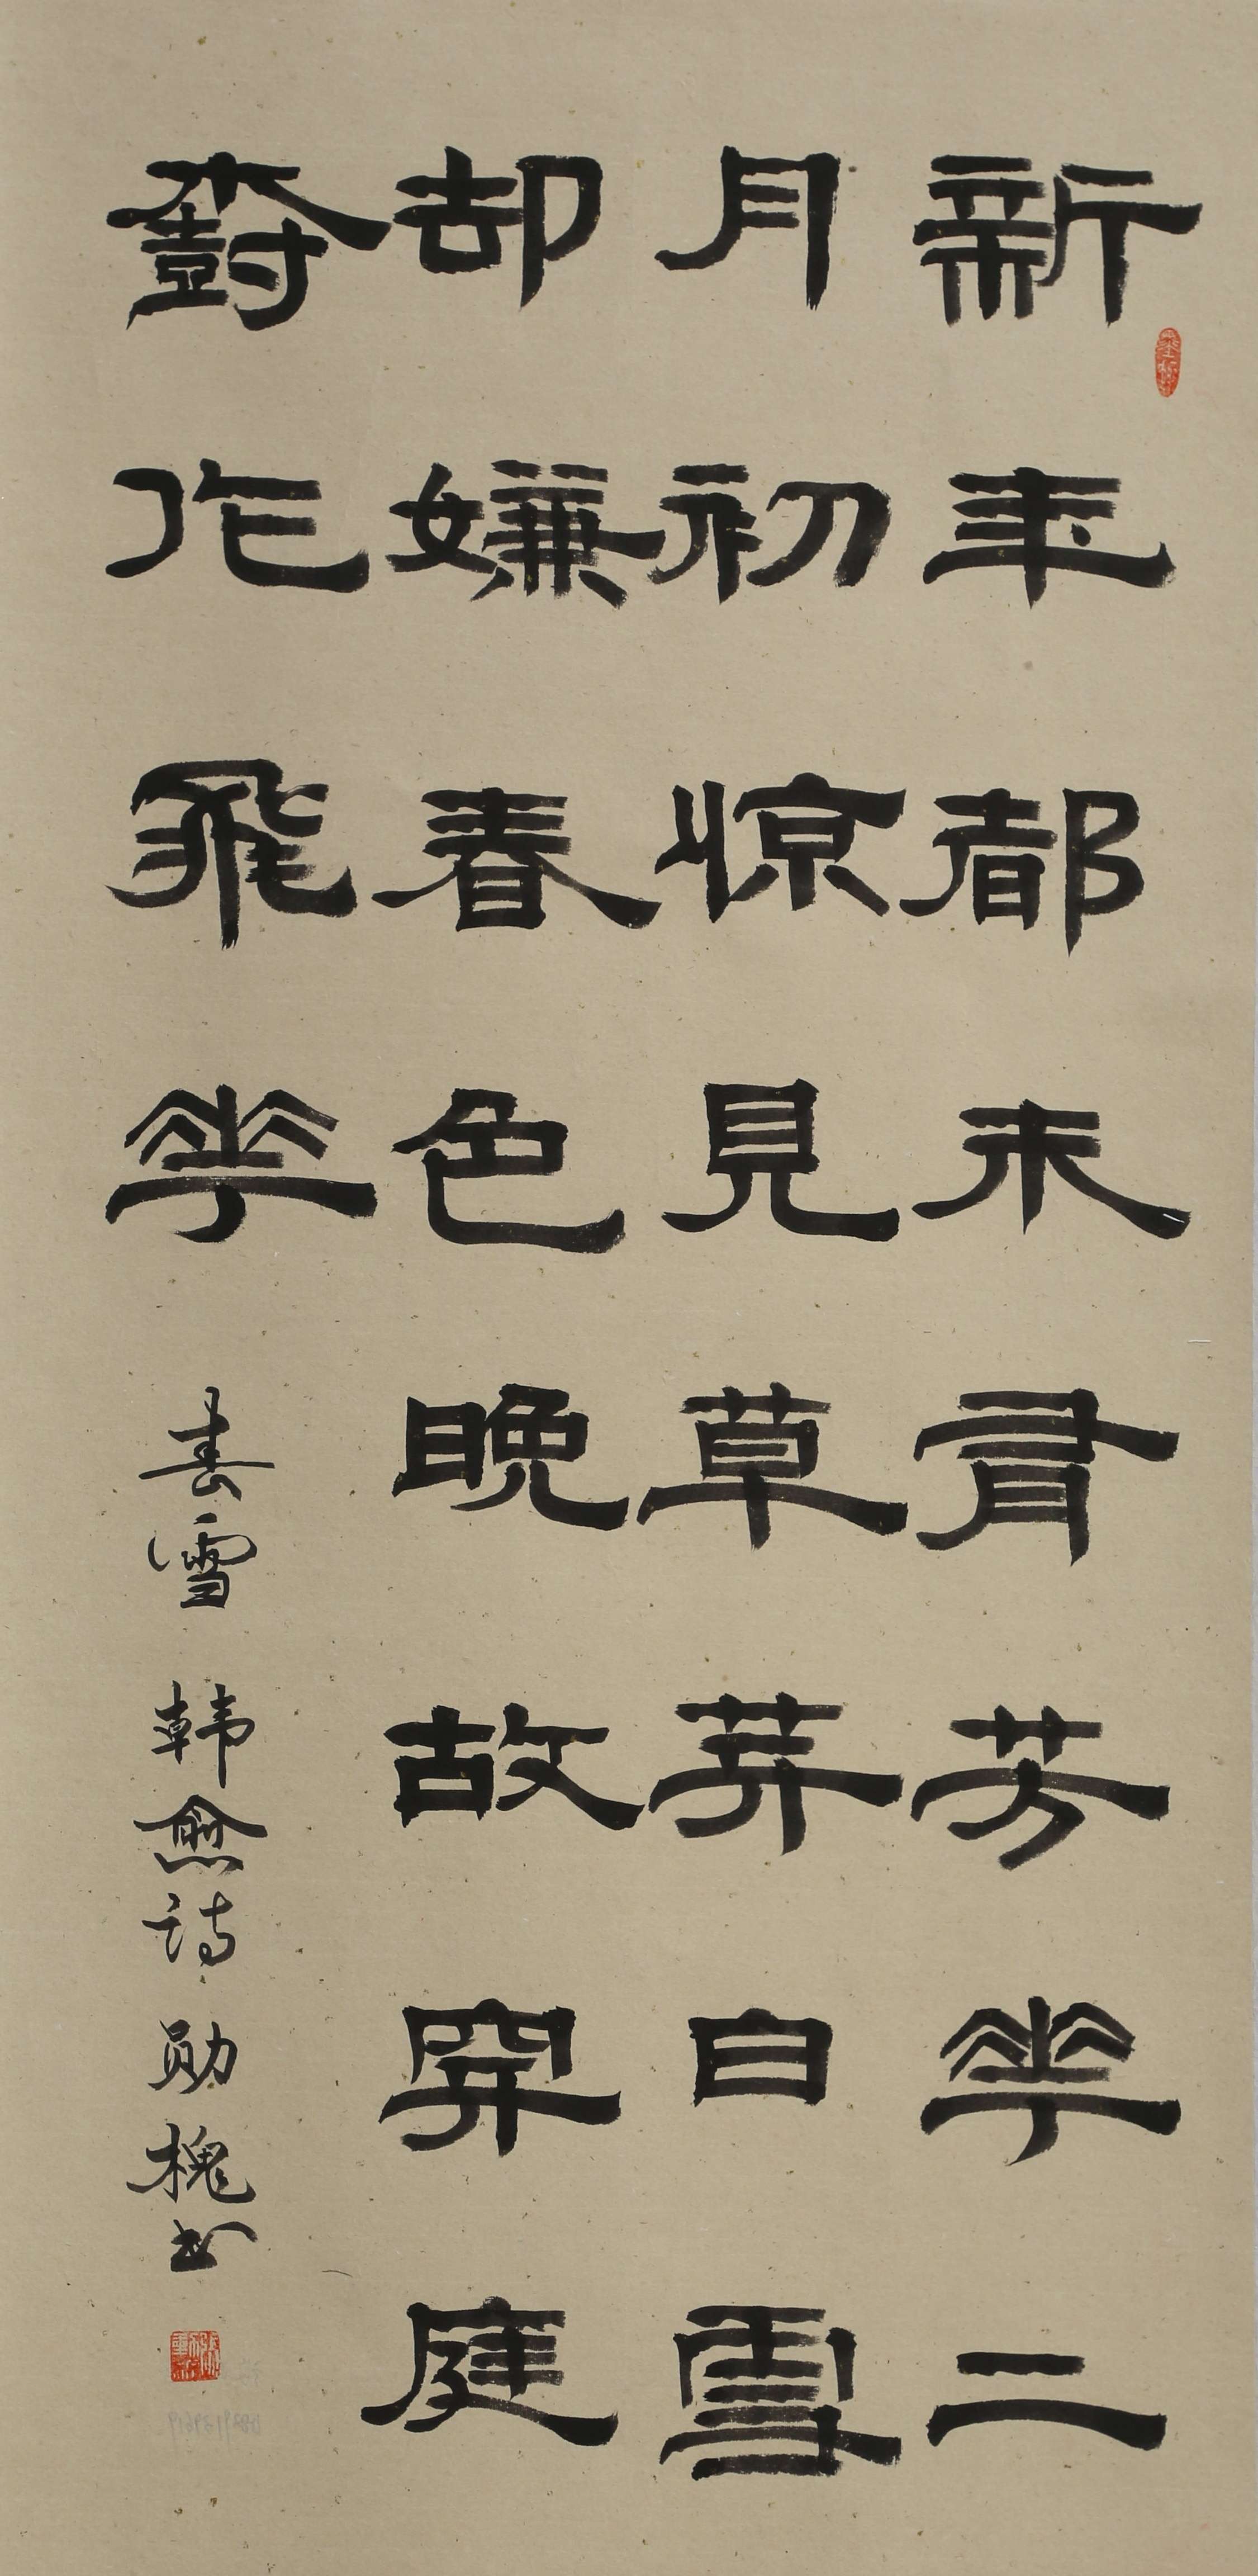 新年都未有芳華二
月初惊見草芽白雪
却嫌春色晚故穿庭
樹作飛華 春雪 韩愈诗 勋槐书